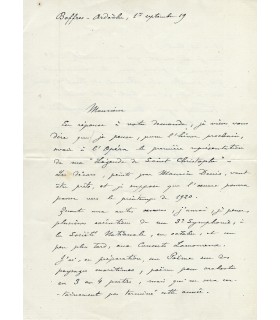 Boffres - Ardèche, 1er septembre 19
Monsieur
En réponse à votre demande, je viens vous
dire que je pense, pour l'hiver prochain,
avoir à l'Opéra la première représentation
de ma "Légende de Saint Christophe" -
Les décors, peints par Maurice Denis, sont
été prêts, et je suppose que l'œuvre pourra
passer vers le printemps de 1920.
Quant aux autres œuvres, j'aurai, je pense,
plusieurs exécutions de ma 3e Symphonie, à
la Société Nationale, en octobre, et un
peu plus tard, aux Concerts Lamoureux.
J'ai, en préparation, un Poème sur des
paysages maritimes, poème pour orchestre
en 3 ou 4 parties, mais qui ne sera
certainement pas terminé cette année.